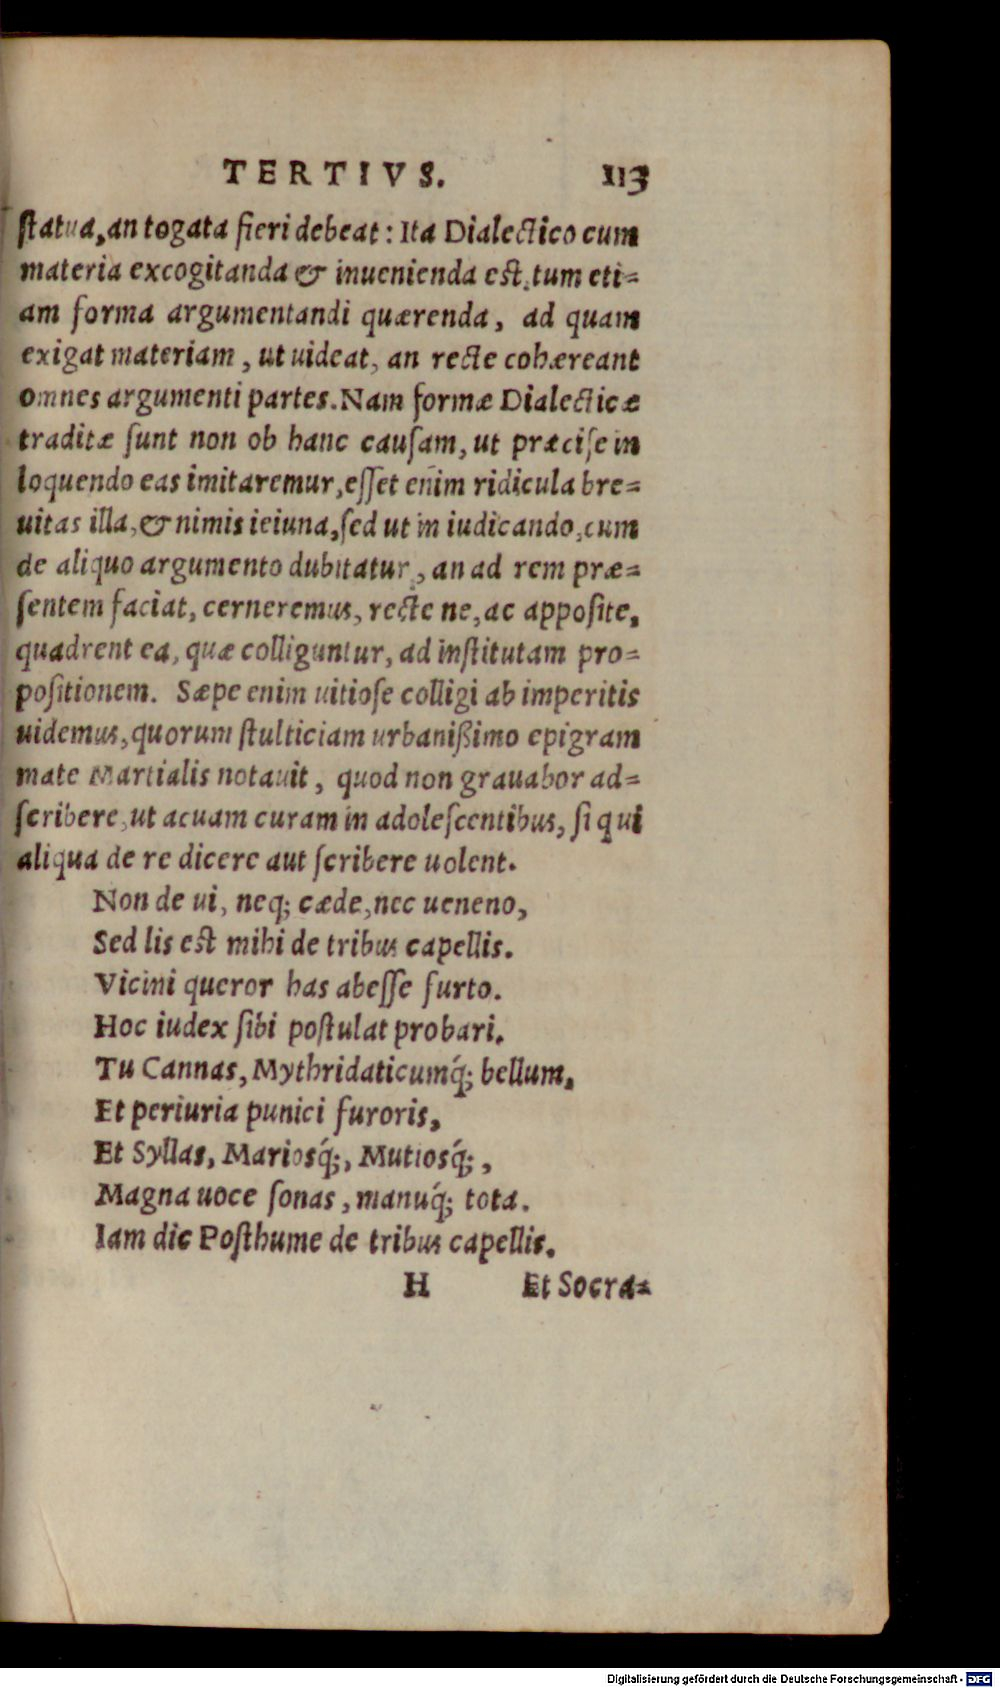 TERTIVS. 113
ſtatua, an togata fieri debeat: Ita Dialectico cum
materia excogitanda & inuenienda est, tum eti=
am forma argumentandi quærenda, ad quam
exigat materiam, ut uideat, an recte cohæreant
omnes argumenti partes. Nam formæ Dialecticæ
traditæ ſunt non ob hanc cauſam, ut præciſe in
loquendo eas imitaremur, eſſet enim ridicula bre=
uitas illa, & nimis ieiuna, ſed ut in iudicando, cum
de aliquo argumento dubitatur, an ad rem præ=
ſentem faciat, cerneremus, recte ne, ac appoſite,
quadrent ea, quæ colliguntur, ad inſtitutam pro=
poſitionem. Sæpe enim uitioſe colligi ab imperitis
uidemus, quorum ſtulticiam urbanißimo epigram
mate Martialis notauit, quod non grauabor ad=
ſcribere, ut acuam curam in adoleſcentibus, ſi qui
aliqua de re dicere aut ſcribere uolent.
Non de ui, neq; cæde, nec ueneno,
Sed lis est mihi de tribus capellis.
Vicini queror has abeſſe furto.
Hoc iudex ſibi poſtulat probari.
Tu Cannas, Mythridaticumq́; bellum,
Et periuria punici furoris,
Et Syllas, Mariosq́;, Mutiosq́;,
Magna uoce ſonas, manuq́; tota.
Iam dic Poſthume de tribus capellis.
H Et Socra=
Digitalisierung gefördert durch die Deutsche Forschungsgemeinschaft - DFG